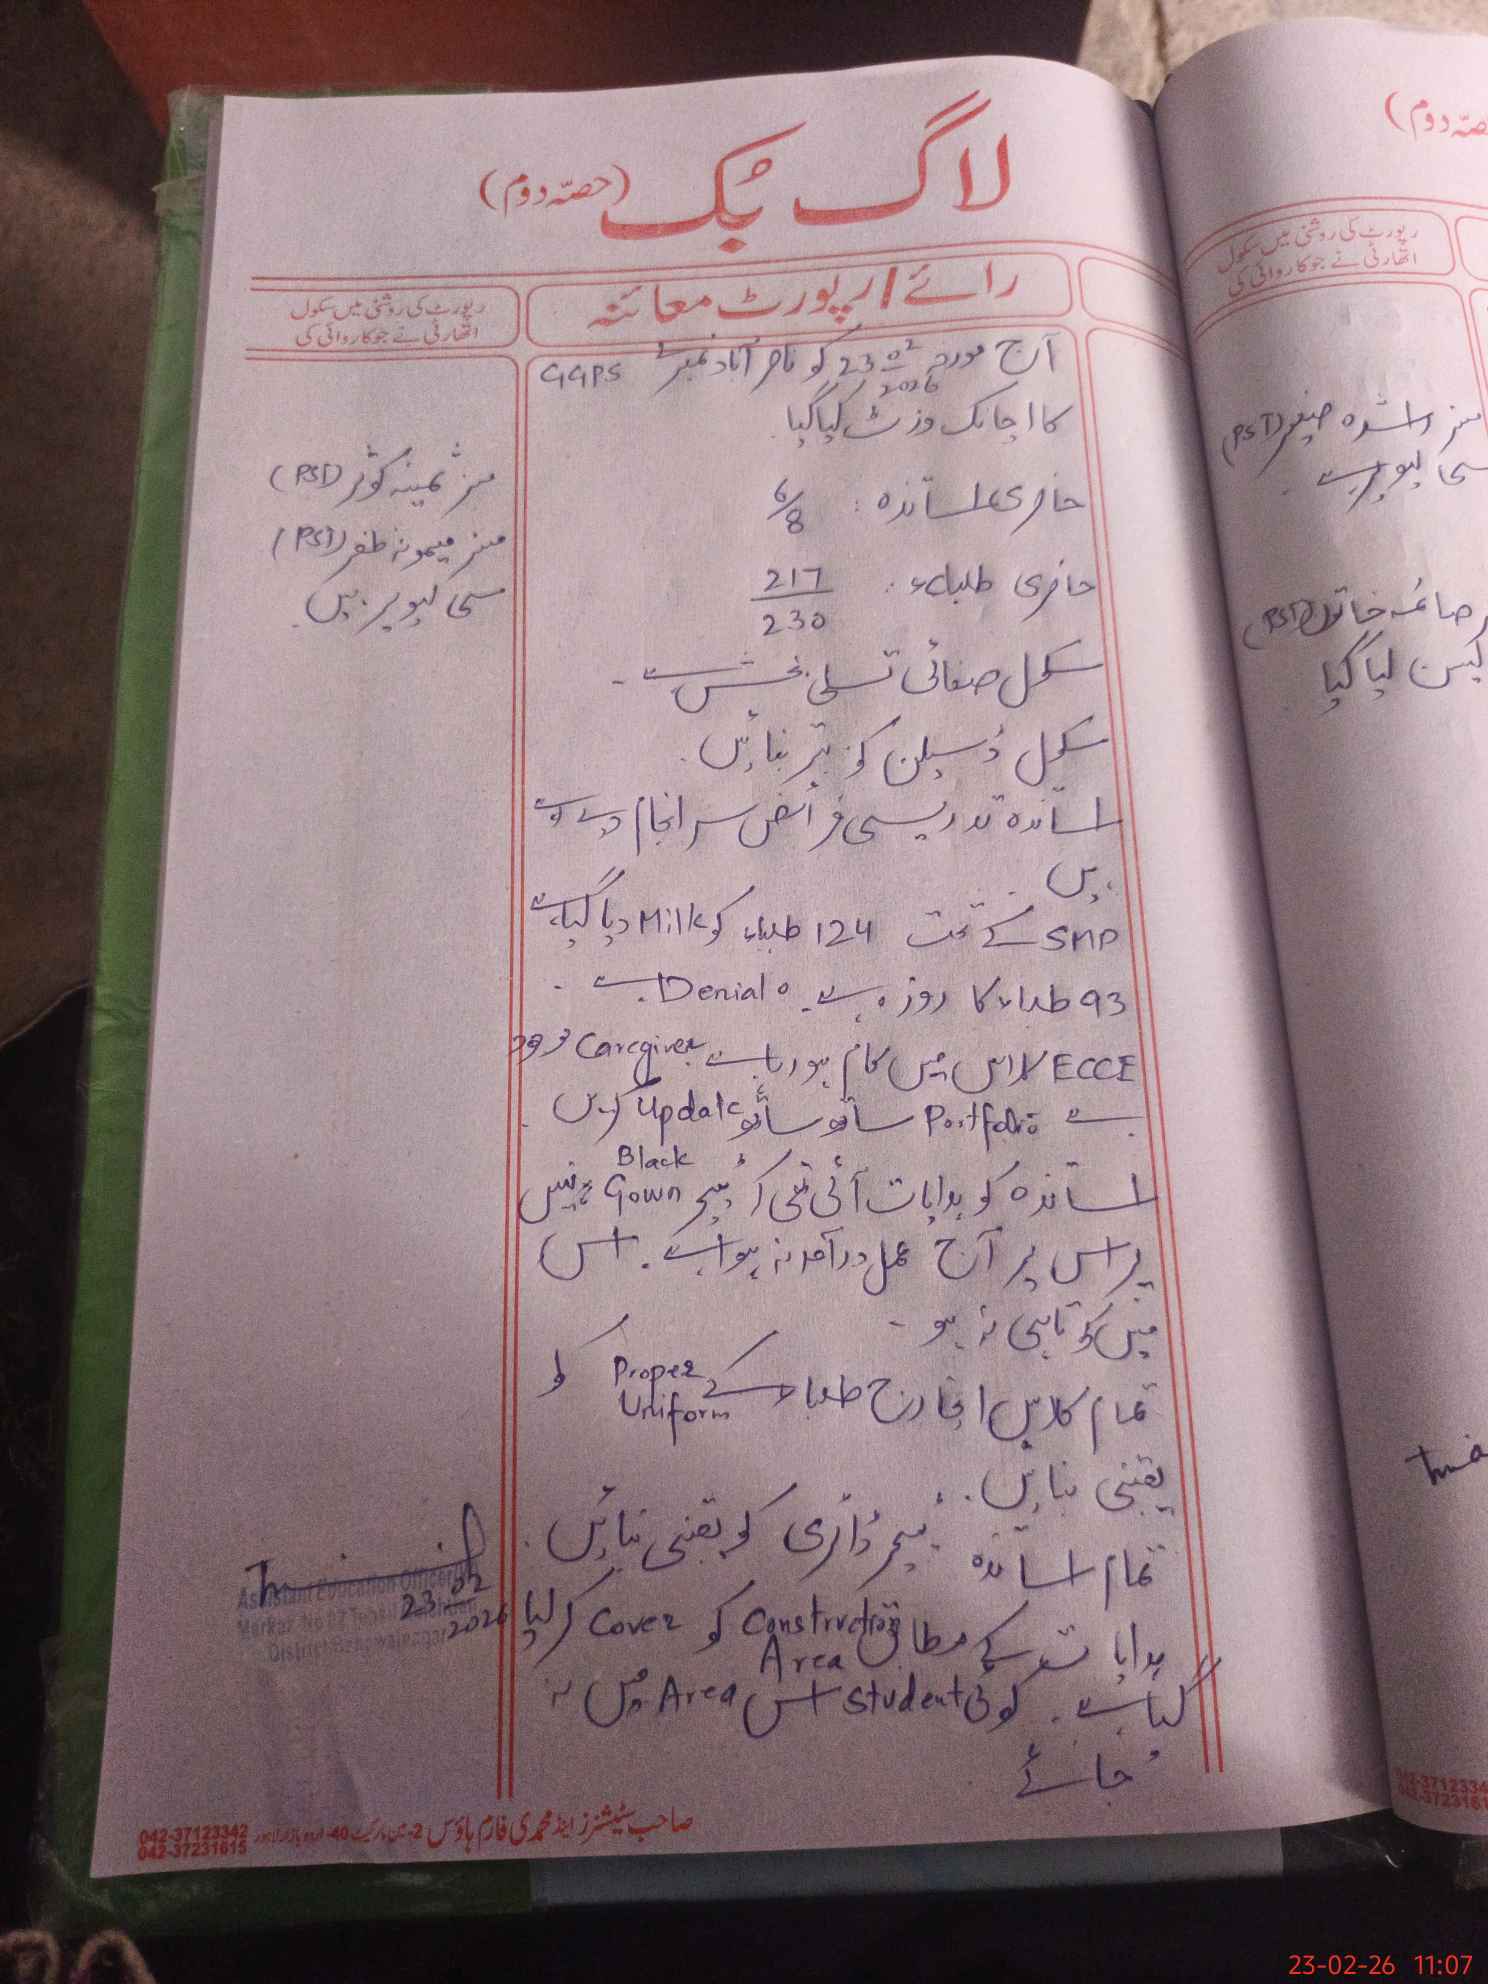 لاگ بُک (حصّہ دوم)
رائے / رپورٹ معائنہ
رپورٹ کی روشنی میں سکول
اتھارٹی نے جو کاروائی کی
آج مورخہ 23 02 2026 کو ناصر آباد نمبر GGPS
کا اچانک وزٹ کیا گیا۔
حاضری اساتذہ : 6/8
حاضری طلباء : 217/230
سکول صفائی تسلی بخش ہے۔
سکول ڈسپلن کو بہتر بنائیں۔
اساتذہ تدریسی فرائض سرانجام دے رہے
ہیں۔
SMP کے تحت 124 طلباء کو Milk دیا گیا ہے
93 طلباء کا روزہ ہے۔ 0 Denial ہے۔
ECCE کلاس میں کام ہو رہا ہے Caregiver موجود
ہے Portfolio ساتھ ساتھ Update کریں۔
اساتذہ کو ہدایات آئی تھی کہ ٹیچر Black Gown پہنیں
پر اس پر آج عمل درآمد نہ ہوا ہے۔ اس
میں کوتاہی نہ ہو۔
تمام کلاس انچارج طلباء کے Proper Uniform کو
یقینی بنائیں۔
تمام اساتذہ ٹیچر ڈائری کو یقینی بنائیں۔
ہدایات کے مطابق Construction Area کو Cover کر لیا
گیا ہے۔ کوئی Student اس Area میں نہ
جائے
مسز ثمینہ کوثر (PST)
مسز میمونہ ظفر (PST)
کی لیو پر ہیں۔
Assistant Education Officer
23 02 2026
صاحب سٹیشنرز اینڈ محمدی فارم ہاؤس 2- مارکیٹ 40- اردو بازار لاہور 042-37123342
042-37231615
حصّہ دوم)
رپورٹ کی روشنی میں سکول
اتھارٹی نے جو کاروائی کی
مسز راشدہ صغیر (PST)
کی لیو پر ہے۔
صائمہ خاتون (PST)
لیا گیا
042-3712334
042-3723161
23-02-26 11:07